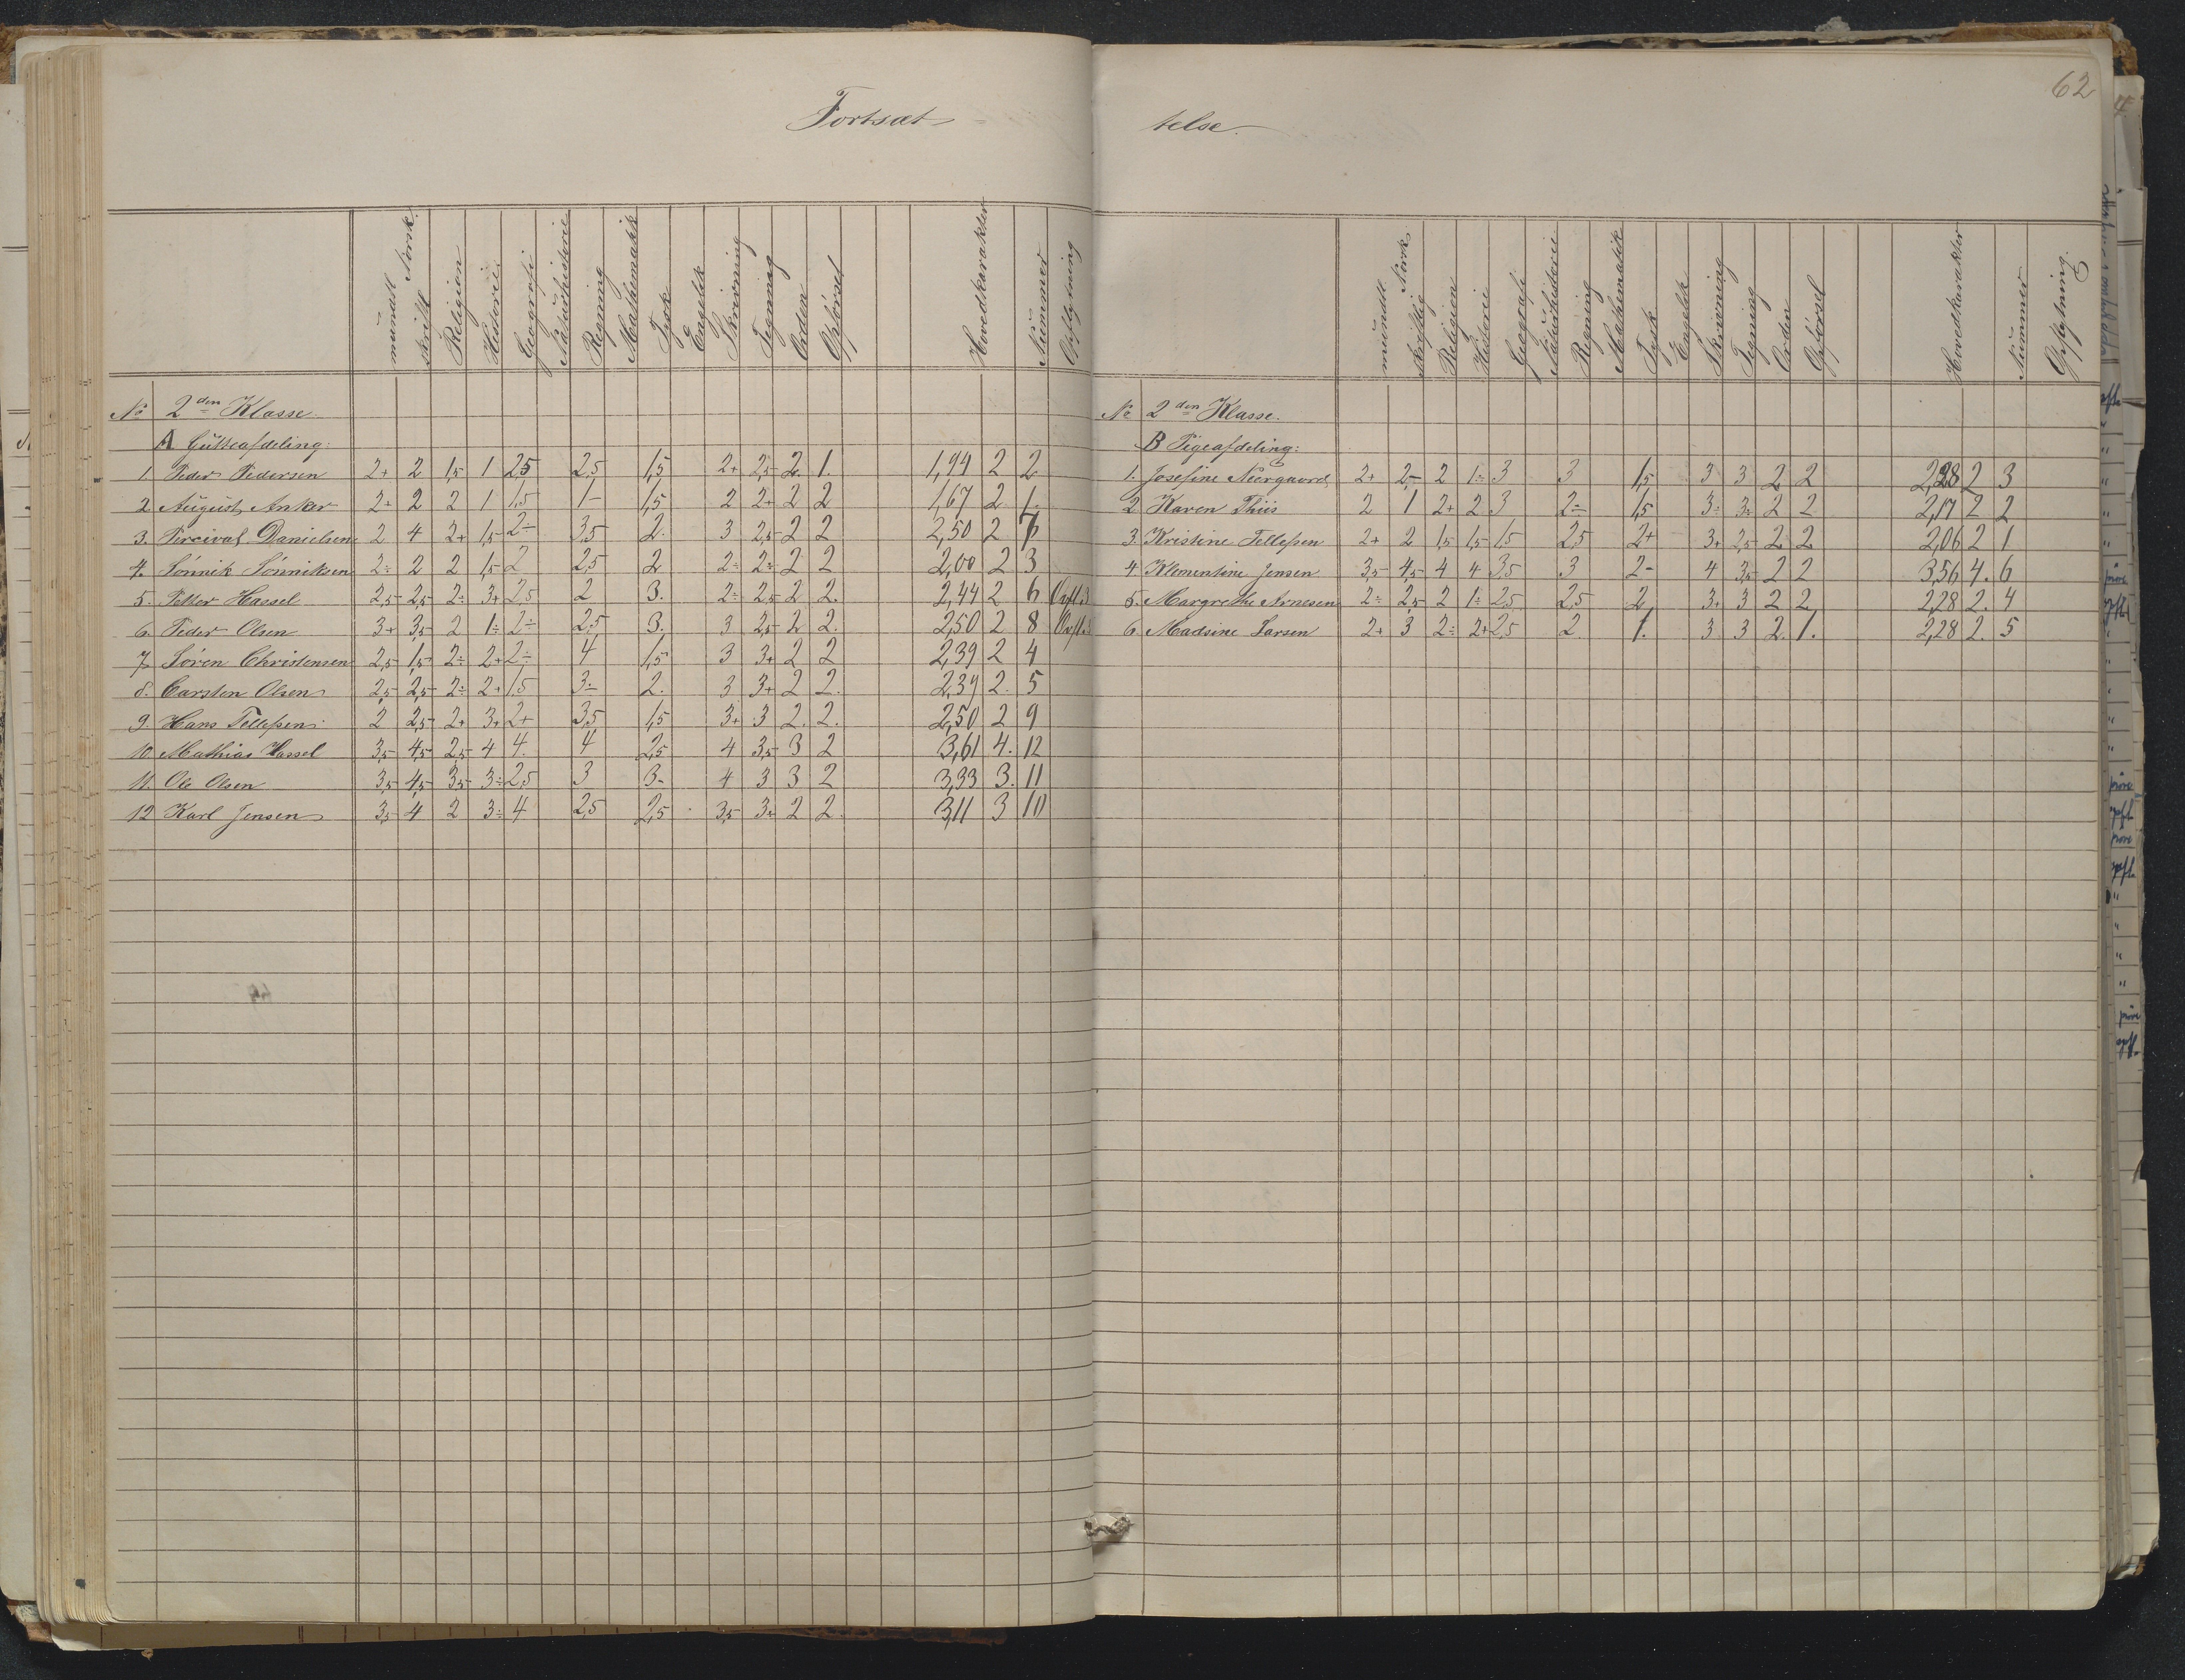 Fortsæt=
mundtl. Norsk.
skriftl
Religion
Historie.
Geografi
Naturhistorie
Regning
Mathematik
Tysk
Engelsk
Skrivning
Tegning
Orden
Opførsel
Hovedkarakter
Nummer
Opflytning
No 2den Klasse.
A Gutteafdeling:
1. Peder Pedersen 2+ 2 1,5 1 2,5 2,5 1,5 2+ 2,5 2 1. 1,94 2 2
2 August Anker 2+ 2 2 1 1,5 1- 1,5 2 2+ 2 2 1,67 2 1.
3. Percival Danielsen 2 4 2+ 1,5 2÷ 3,5 2. 3 2,5 2 2 2,50 2 7
4. Sønnik Sønniksen 2÷ 2 2 1,5 2 2,5 2 2÷ 2÷ 2 2 2,00 2 3
5. Petter Hassel 2,5 2,5 2÷ 3+ 2,5 2 3. 2÷ 2,5 2 2. 2,44 2 6 Opfl.3
6. Peder Olsen 3+ 3,5 2 1÷ 2÷ 2,5 3. 3 2,5 2 2. 2,50 2 8
7 Søren Christensen 2,5 1,5 2÷ 2+ 2÷ 4 1,5 3 3+ 2 2 2,39 2 4
8. Carsten Olsen 2,5 2,5 2÷ 2+ 1,5 3÷ 2. 3 3+ 2 2. 2,39 2. 5
9. Hans Tellefsen 2 2,5 2+ 3+ 2+ 3,5 1,5 3+ 3 2. 2. 2,50 2 9
10 Mathias Hassel 3,5 4,5 2,5 4 4. 4 2,5 4 3,5 3 2 3,61 4. 12
11. Ole Olsen 3,5 4,5 3,5 3÷ 2,5 3 3- 4 3 3 2 3,33 3. 11
12 Karl Jensen 3,5 4 2 3÷ 4 2,5 2,5 3,5 3÷ 2 2. 3,11 3 10
62
telse.
mundtl. Norsk
skriftlig
Religion
Historie
Geografi
Naturhistorie
Regning
Mathematik
Tysk
Engelsk
Skrivning
Tegning
Orden
Opførsel
Hovedkarakter
Nummer
Opflytning.
No 2den Klasse.
B Pigeafdeling:
1. Josefine Neergaard 2+ 2,5 2 1÷ 3 3 1,5 3 3 2 2 2,28 2 3
2 Karen Thiis 2 1 2+ 2 3 2÷ 1,5 3÷ 3÷ 2 2 2,17 2 2
3. Kristine Tellefsen 2+ 2 1,5 1,5 1,5 2,5 2+ 3+ 2,5 2 2 2,06 2 1
4 Klementine Jensen 3,5 4,5 4 4 3,5 3 2- 4 3,5 2 2 3,56 4. 6
5. Margrethe Arnesen 2÷ 2,5 2 1÷ 2,5 2,5 2 3+ 3 2 2 2,28 2. 4
6. Madsine Larsen 2+ 3 2÷ 2+ 2,5 2. 1. 3 3 2 1. 2,28 2. 5